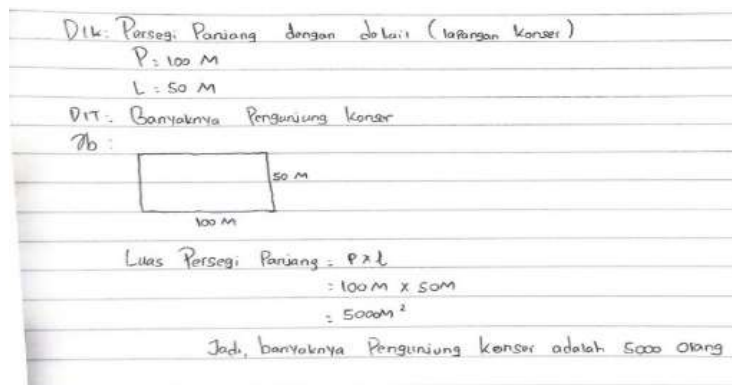 Dik: Persegi Panjang dengan detail (lapangan konser)
P: 100 M
L: 50 M
DIT: Banyaknya Pengunjung konser
Jb:
50 M
100 M
Luas Persegi Panjang = P x l
= 100 M x 50M
= 5000M²
Jadi, banyaknya Pengunjung konser adalah 5000 orang